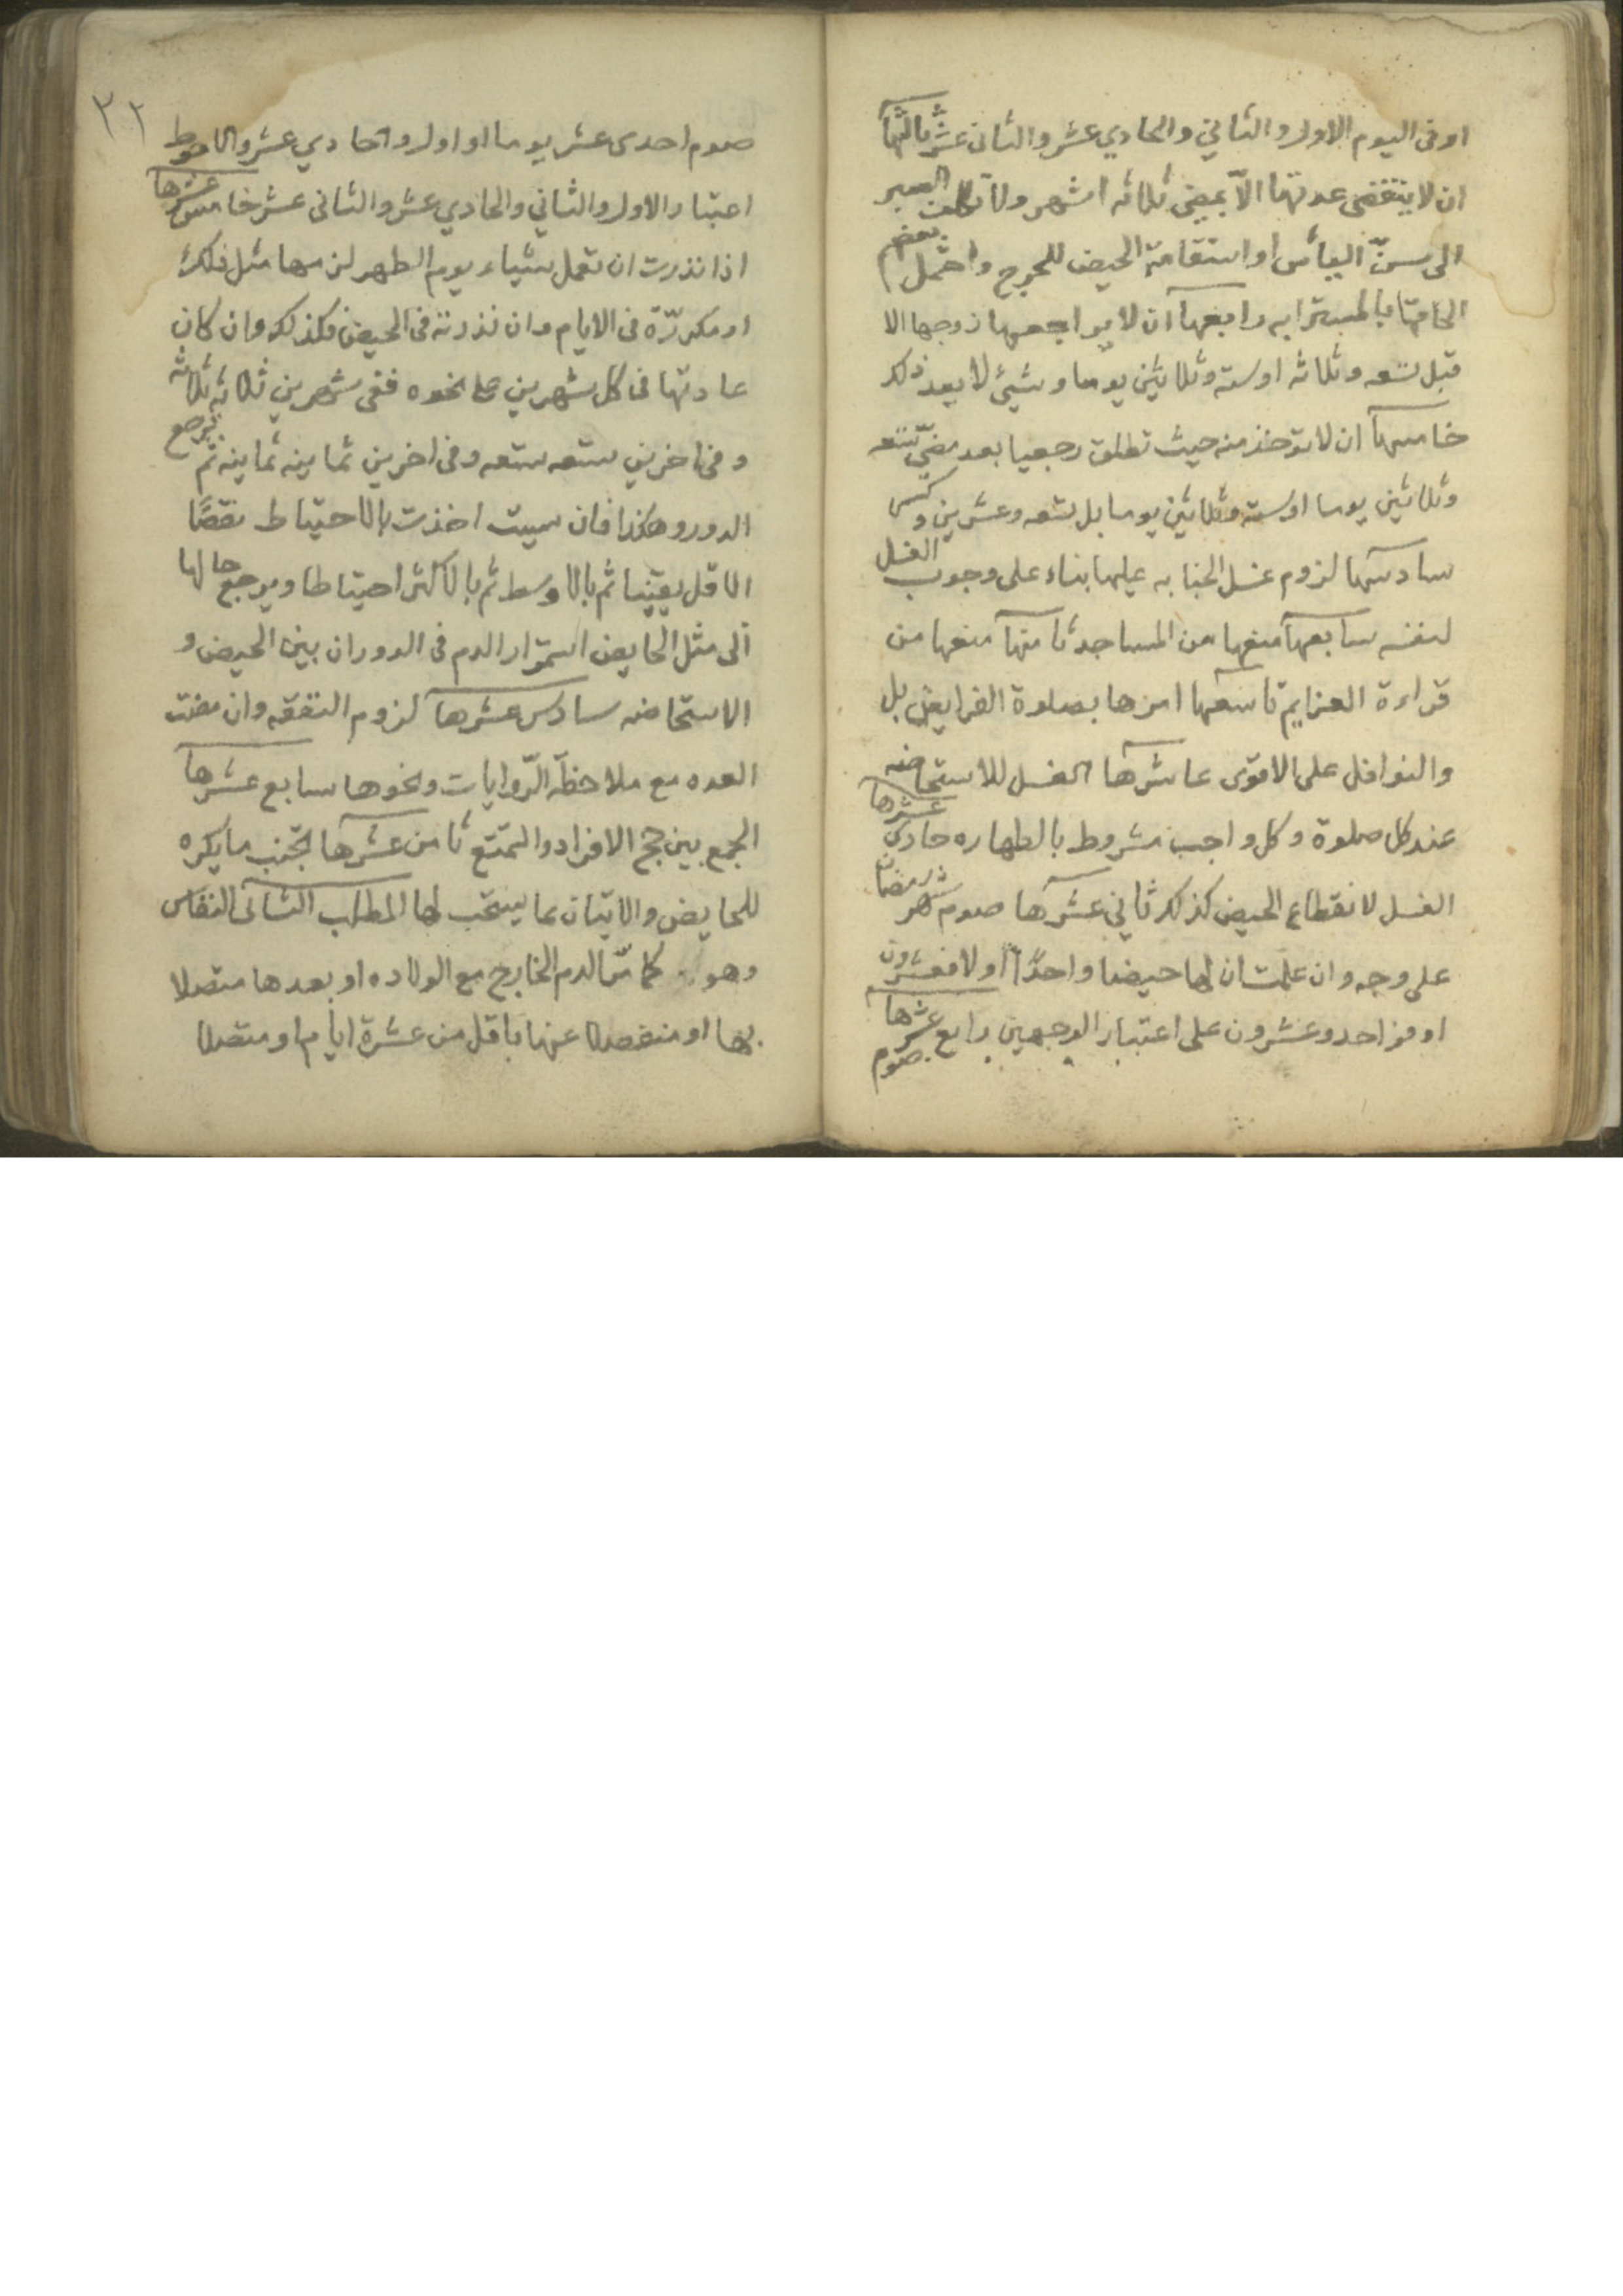 او فى اليوم الاول والثاني والحادي عشر والثانى عشر ثالثها
ان لا ينقضى عدتها الّا بمضى ثلاثه اشهر ولا تكلف الصبر
الى سنّ اليأس او استقامة الحيض للحرج واحتمل بعضهم
الحاقها بالمسترابه رابعها ان لا يراجعها زوجها الا
قبل تسعه وثلاثه او سته وثلاثين يوما وشيئ لا بعد ذلك
خامسها ان لا تؤخذ منه حيث تطلق رجعيا بعد مضىّ تسعه
وثلاثين يوما او سته وثلاثين يوما بل تسعه وعشرين وكسر
سادسها لزوم غسل الجنابه عليها بناء على وجوب الغسل
لنفسه سابعها منعها من المساجد ثامنها منعها من
قراءة العزايم تاسعها امرها بصلوة الفرايض بل
والنوافل على الاقوى عاشرها الغسل للاستحاضه
عند كل صلوة وكل واجب مشروط بالطهاره حادى عشرها
الغسل لانقطاع الحيض كذلك ثاني عشرها صوم شهر رمضان
على وجه وان علمت ان لها حيضا واحدًا اولا فعشرون
او فواحد وعشرون على اعتبار الوجهين رابع عشرها
صوم
٣٢
صوم احدى عشر يوما او اول واحادي عشر والاحوط
اعتبار الاول والثاني والحادي عشر والثانى عشر خامس عشرها
اذا نذرت ان تعمل شياء يوم الطهر لزمها مثل ذلك
او مكررّة فى الايام وان نذرته فى الحيض فكذلك وان كان
عادتها فى كل شهرين على نحوه ففى شهرين ثلاثه ثلاثه
وفى اخرين ستعه ستعه وفى اخرين ثمانيه ثمانيه ثم يرجع
الدور وهكذا فان سيت اخذت بالاحتياط نقصًا
الاقل يقينا ثم بالاوسط ثم بالاكثر احتياطا ويرجع حالها
الى مثل الحايض استمرار الدم فى الدوران بين الحيض و
الاستحاضه سادس عشرها لزوم النفقه وان مضت
العده مع ملاحظة الرّوايات ونحوها سابع عشرها
الجمع بين حج الافراد والتمتع ثامن عشرها تجنب ما يكره
للحايض والاتيان بما يستحب لها المطلب الثانى النفاس
وهو كما مرّ الدم الخارج مع الولاده او بعدها متصلا
بها او منفصلا عنها باقل من عشرة ايام او متصلا